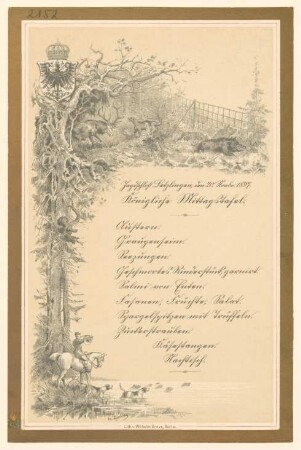 2152
Jagdschloß Letzlingen, den 20. Novbr. 1897.
Königliche Mittagstafel.
Austern.
Seezungen.
Geschmortes Rinderstück garnirt.
Salmi von Enten.
Fasanen, Früchte, Salat.
Spargelspitzen mit Trüffeln.
Zuckerstrauben.
Käsestangen.
Nachtisch.
Lith. v. Wilhelm Greve, Berlin.